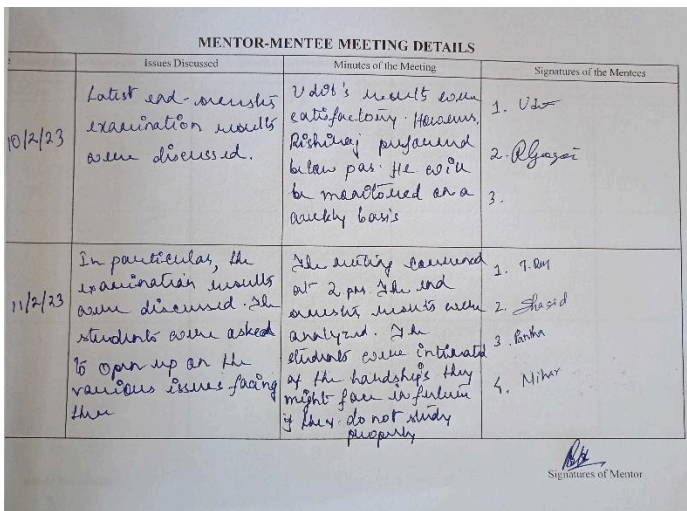 MENTOR-MENTEE MEETING DETAILS
Issues Discussed
Minutes of the Meeting
Signatures of the Mentees
10/2/23
Latest end-semester
examination results
were discussed.
Udit's results were
satisfactory. However,
Rishiraj performed
below par. He will
be monitored on a
weekly basis
1.
2. R Gogoi
3.
11/2/23
In particular, the
examination results
were discussed. The
students were asked
to open up on the
various issues facing
them
The meeting convened
at 2 pm. The end
semester results were
analyzed. The
students were intimated
of the hardships they
might face in future
if they do not study
properly
1.
2. Shasid
3.
4. Mihir
Signatures of Mentor